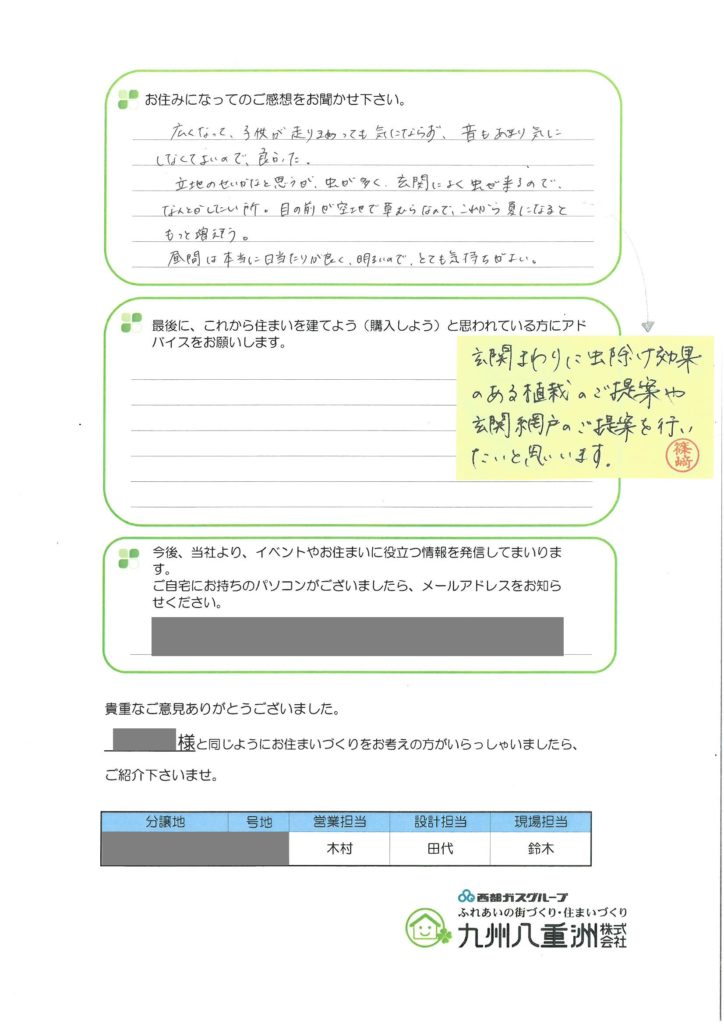 お住みになってのご感想をお聞かせ下さい。
広くなって、子供が走りまわっても気にならず、音もあまり気に
しなくてよいので、良かった。
立地のせいかなと思うが、虫が多く、玄関によく虫が来るので、
なんとかしたい所。目の前が空地で草むらなので、これから夏になると
もっと増えそう。
昼間は本当に日当たりが良く、明るいので、とても気持ちがよい。
最後に、これから住まいを建てよう（購入しよう）と思われている方にアド
バイスをお願いします。
玄関まわりに虫除け効果
のある植栽のご提案や
玄関網戸のご提案を行い
たいと思います。
篠崎
今後、当社より、イベントやお住まいに役立つ情報を発信してまいりま
す。
ご自宅にお持ちのパソコンがございましたら、メールアドレスをお知ら
せください。
貴重なご意見ありがとうございました。
様と同じようにお住まいづくりをお考えの方がいらっしゃいましたら、
ご紹介下さいませ。
分譲地 号地 営業担当 設計担当 現場担当
木村 田代 鈴木
西部ガスグループ
ふれあいの街づくり・住まいづくり
九州八重洲株式会社